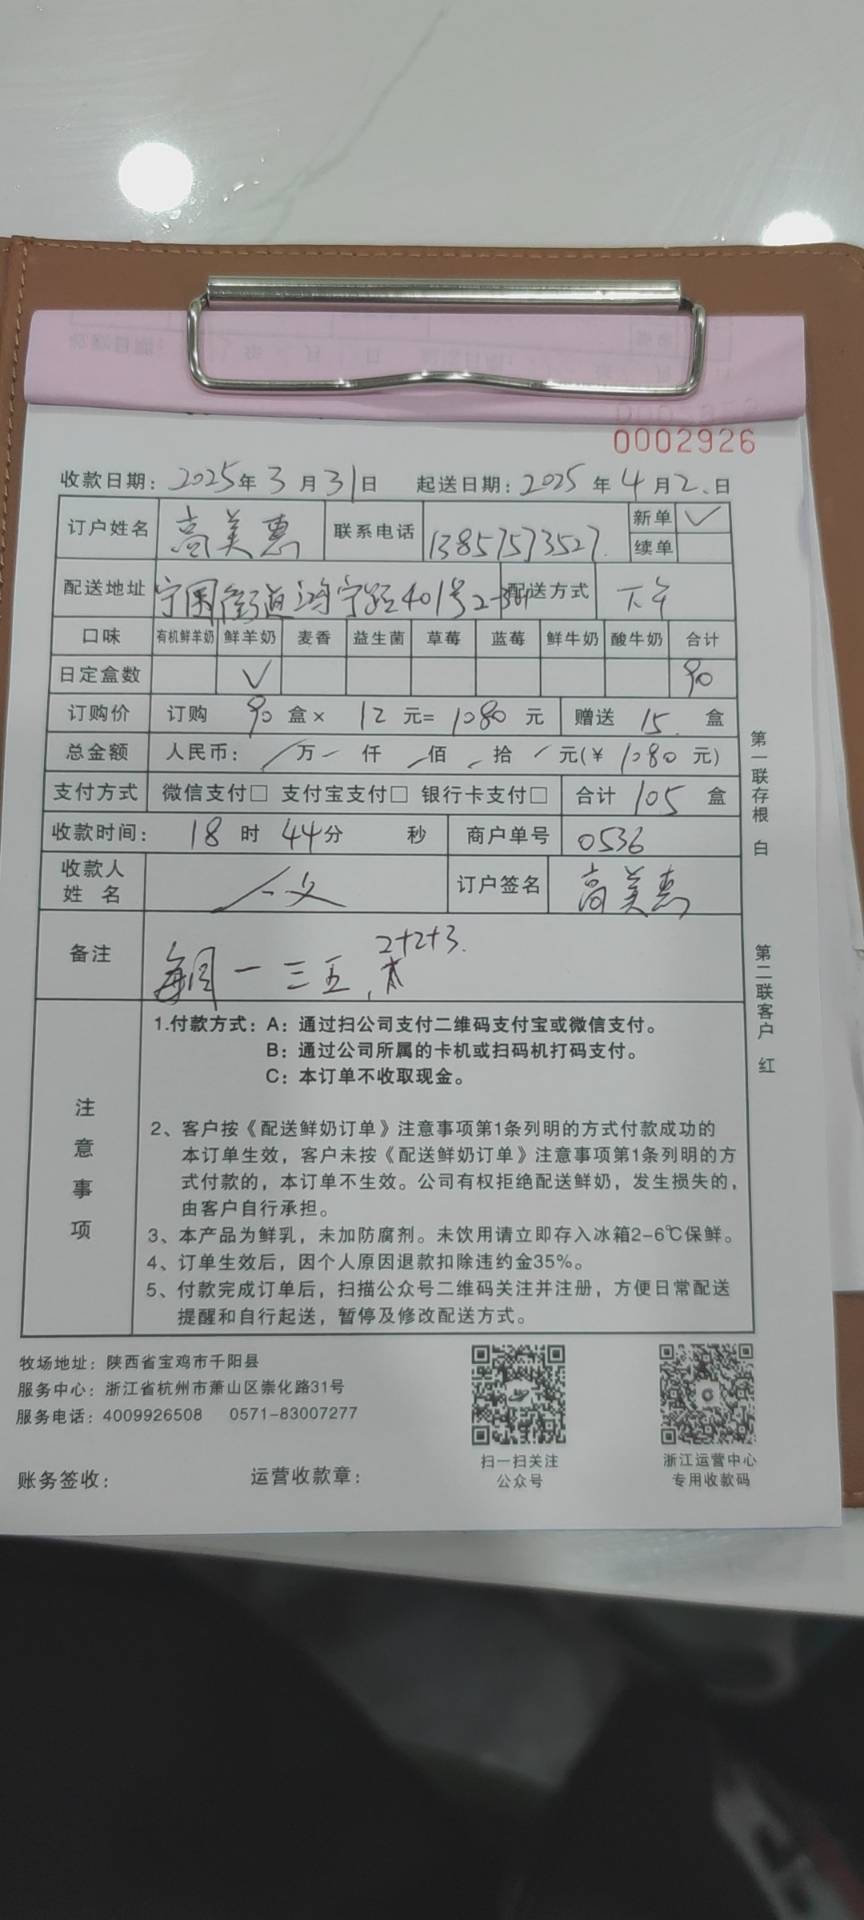 0002926
收款日期：2025年3月31日 起送日期：2025年4月2日
订户姓名 高美惠 联系电话 13857573527 新单 ✓
续单
配送地址 宁围街道鸿宁路401号2-301 配送方式 下午
口味 有机鲜羊奶 鲜羊奶 麦香 益生菌 草莓 蓝莓 鲜牛奶 酸牛奶 合计
日定盒数 ✓ 90
订购价 订购 90 盒× 12 元= 1080 元 赠送 15 盒
总金额 人民币： 万 仟 佰 拾 元(¥ 1080 元)
支付方式 微信支付□ 支付宝支付□ 银行卡支付□ 合计 105 盒
收款时间： 18 时 44分 秒 商户单号 0536
收款人
姓 名
订户签名 高美惠
备注 每周一三五， 2+2+3.
注意事项
1.付款方式：A：通过扫公司支付二维码支付宝或微信支付。
B：通过公司所属的卡机或扫码机打码支付。
C：本订单不收取现金。
2、客户按《配送鲜奶订单》注意事项第1条列明的方式付款成功的
本订单生效，客户未按《配送鲜奶订单》注意事项第1条列明的方
式付款的，本订单不生效。公司有权拒绝配送鲜奶，发生损失的，
由客户自行承担。
3、本产品为鲜乳，未加防腐剂。未饮用请立即存入冰箱2-6℃保鲜。
4、订单生效后，因个人原因退款扣除违约金35%。
5、付款完成订单后，扫描公众号二维码关注并注册，方便日常配送
提醒和自行起送，暂停及修改配送方式。
第一联存根 白
第二联客户 红
牧场地址：陕西省宝鸡市千阳县
服务中心：浙江省杭州市萧山区崇化路31号
服务电话：4009926508 0571-83007277
扫一扫关注
公众号
浙江运营中心
专用收款码
账务签收： 运营收款章：